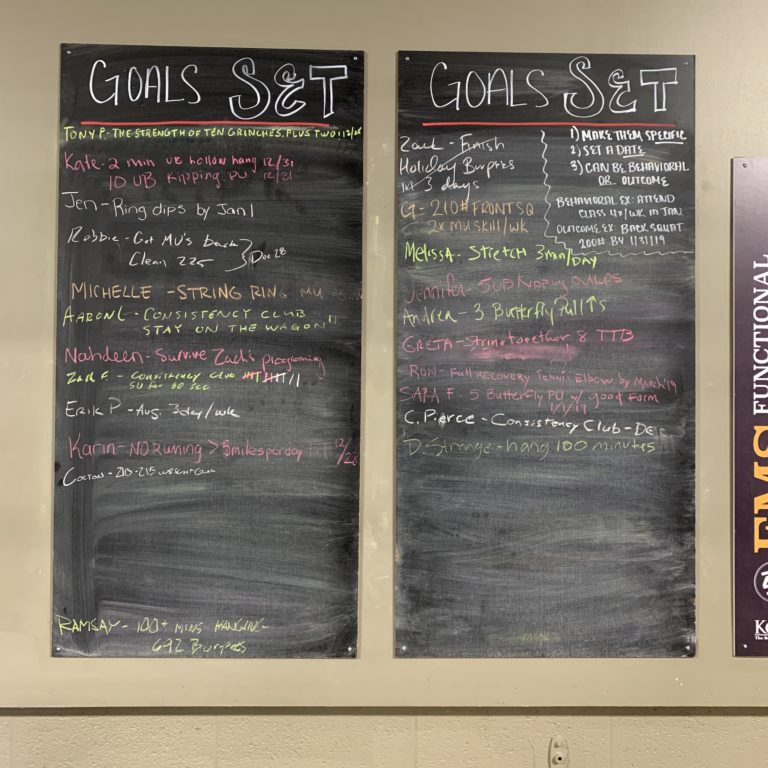 GOALS SET
TONY P. - THE STRENGTH OF TEN GRINCHES, PLUS TWO! 12/25
Kate - 2 min UB hollow hang 12/31
10 UB Kipping PU - 12/21
Jen - Ring dips by Jan 1
Robbie - Get MU's back
Clean 225 } Dec 28
MICHELLE - STRING RING MU
AARON L - CONSISTENCY CLUB
STAY ON THE WAGON!!
Nahdeen - Survive Zach's programing
Zack F. - Consistency Club
SU for 60 sec
Erik P - Avg. 3 day/wk
Karin - NO RUNING > 5 miles per day 12/28
210-215
RAMSAY - 100+ MINS HANGING -
692 Burpees
GOALS SET
Zack - Finish
Holiday Burpees
in 3 days
G - 210# FRONT SQ
2x MU SKILL/WK
Melissa - Stretch 3min/DAY
Jennifer - 5UB Kipping Pullups
Andrea - 3 Butterfly Pull↑s
GRETA - String together 8 TTB
RON - Full recovery Tennis Elbow by March '19
SARA F. - 5 Butterfly PU w/ good form
1/1/19
C. Pierce - Consistency Club - Dec
D. Strange - hang 100 minutes
1) MAKE THEM SPECIFIC
2) SET A DATE
3) CAN BE BEHAVIORAL
OR OUTCOME
BEHAVIORAL EX: ATTEND
CLASS 4x/WK IN JAN.
OUTCOME EX: BACK SQUAT
200# BY 1/31/19
EMS FUNCTIONAL